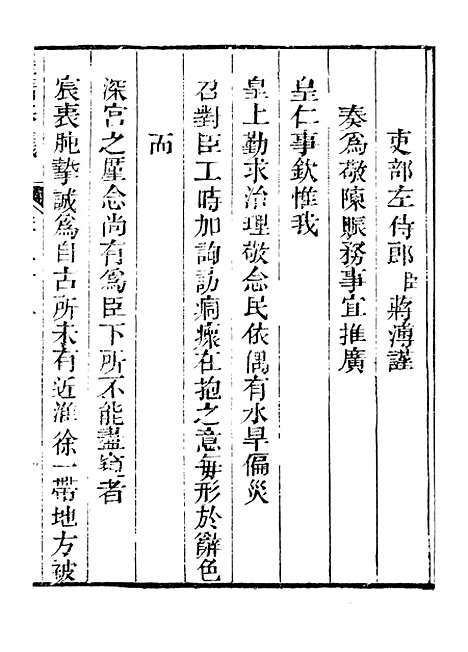 吏部左侍郎臣蔣溥謹
奏為敬陳賑務事宜推廣
皇仁事欽惟我
皇上勤求治理敬念民依偶有水旱偏災
召對臣工時加詢訪痌瘝在抱之意每形於辭色
而
深宫之廑念尚有為臣下所不能盡窺者
宸衷肫摯誠為自古所未有近淮徐一帶地方被